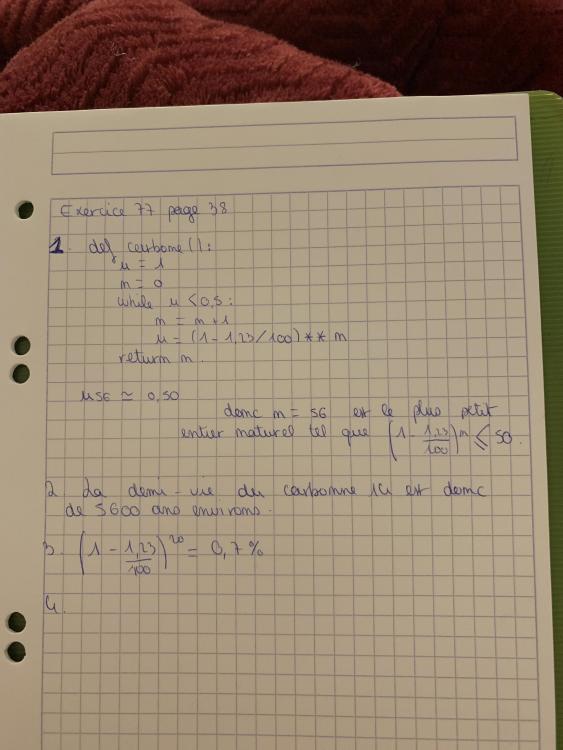 Exercice 77 page 38
1. def carbone():
u = 1
n = 0
while u < 0,5:
n = n+1
u = (1-1,23/100)** n
return n.
u56 ≃ 0,50
donc n = 56 est le plus petit
entier naturel tel que (1 - 1,23/100)^n ⩽ 50.
2. La demi-vie du carbonne 14 est donc
de 5600 ans environs.
3. (1 - 1,23/100)^20 = 0,7 %
4.